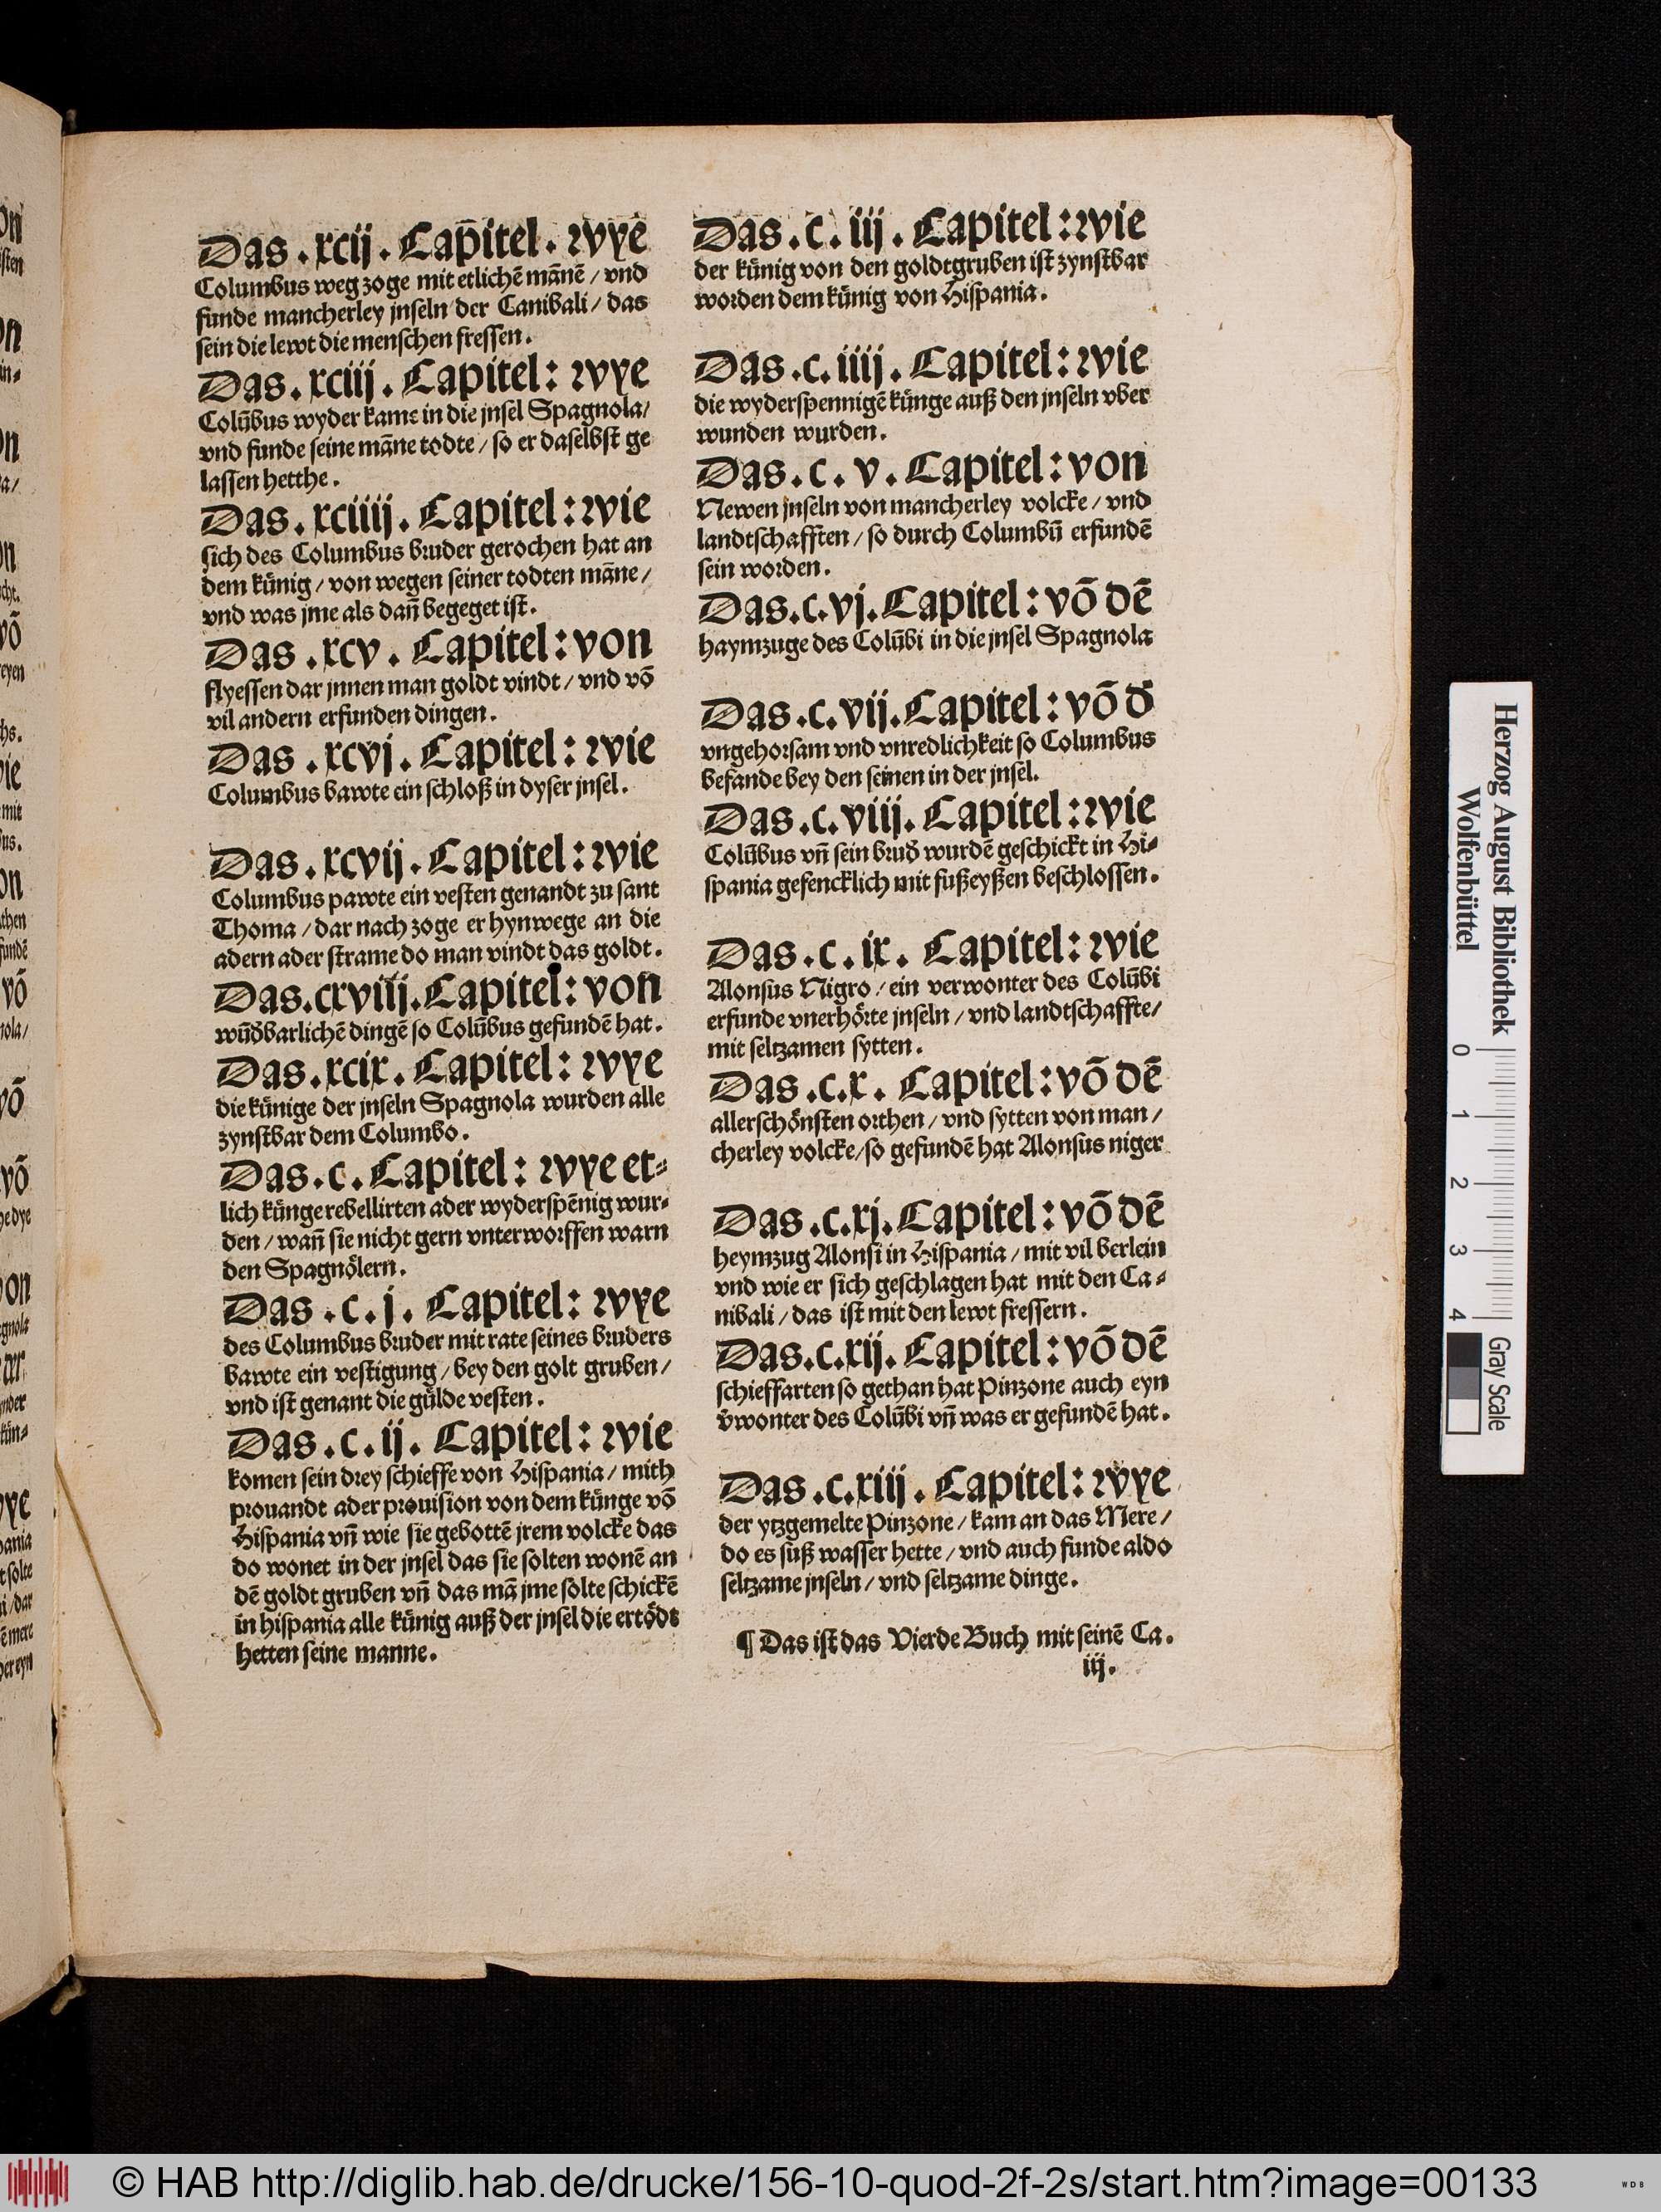 Das . xcij . Capitel . wye
Columbus weg zoge mit etlichē mānē / vnd
funde mancherley jnseln der Canibali / das
sein die lewt die menschen fressen .
Das . xciij . Capitel : wye
Colūbus wyder kame in die jnsel Spagnola /
vnd funde seine māne todte / so er daselbst ge
lassen hetthe .
Das . xciiij . Capitel : wie
sich des Columbus bruder gerochen hat an
dem kůnig / von wegen seiner todten māne /
vnd was jme als dañ begeget ist .
Das . xcv . Capitel : von
flyessen dar jnnen man goldt vindt / vnd vō
vil andern erfunden dingen .
Das . xcvj . Capitel : wie
Columbus bawte ein schloß in dyser jnsel .
Das . xcvij . Capitel : wie
Columbus pawte ein vesten genandt zu sant
Thoma / dar nach zoge er hynwege an die
adern ader strame do man vindt das goldt .
Das . cxviij . Capitel : von
wūd̄barlichē dingē so Colūbus gefundē hat .
Das . xcix . Capitel : wye
die kůnige der jnseln Spagnola wurden alle
zynstbar dem Columbo .
Das . c . Capitel : wye et⸗
lich kůnge rebellirten ader wyderspēnig wur⸗
den / wañ sie nicht gern vnterworffen warn
den Spagnőlern .
Das . c . j . Capitel : wye
des Columbus bruder mit rate seines bruders
bawte ein vestigung / bey den golt gruben /
vnd ist genant die gůlde vesten .
Das . c . ij . Capitel : wie
komen sein drey schieffe von Hispania / mith
prouandt ader prouision von dem kůnge vō
Hispania vñ wie sie gebottē jrem volcke das
do wonet in der jnsel das sie solten wonē an
dē goldt gruben vñ das mā jme solte schickē
in hispania alle kůnig auß der jnsel die ertődt
hetten seine manne .
Das . c . iij . Capitel : wie
der kůnig von den goldtgruben ist zynstbar
worden dem kůnig von Hispania .
Das . c . iiij . Capitel : wie
die wyderspennigē kůnge auß den jnseln vber
wunden wurden .
Das . c . v . Capitel : von
Newen jnseln von mancherley volcke / vnd
landtschafften / so durch Columbū erfundē
sein worden .
Das . c . vj . Capitel : vō dē
haymzuge des Colūbi in die jnsel Spagnola
Das . c . vij . Capitel : vō d̄
vngehorsam vnd vnredlichkeit so Columbus
befande bey den seinen in der jnsel .
Das . c . viij . Capitel : wie
Colūbus vñ sein brud̄ wurdē geschickt in Hi⸗
spania gefencklich mit fußeyßen beschlossen .
Das . c . ix . Capitel : wie
Alonsus Nigro / ein verwonter des Colūbi
erfunde vnerhőrte jnseln / vnd landtschaffte /
mit seltzamen sytten .
Das . c . x . Capitel : vō dē
allerschőnsten orthen / vnd sytten von man /
cherley volcke / so gefundē hat Alonsus niger
Das . c . xj . Capitel : vō dē
heymzug Alonsi in Hispania / mit vil berlein
vnd wie er sich geschlagen hat mit den Ca⸗
nibali / das ist mit den lewt fressern .
Das . c . xij . Capitel : vō dē
schieffarten so gethan hat Pinzone auch eyn
v̄wonter des Colūbi vñ was er gefundē hat .
Das . c . xiij . Capitel : wye
der ytzgemelte Pinzone / kam an das Mere /
do es suß wasser hette / vnd auch funde aldo
seltzame jnseln / vnd seltzame dinge .
¶ Das ist das Vierde Buch mit seinē Ca .
iij .
Herzog August Bibliothek
Wolfenbüttel
0 1 2 3 4
Gray Scale
© HAB http://diglib.hab.de/drucke/156-10-quod-2f-2s/start.htm?image=00133
WDB